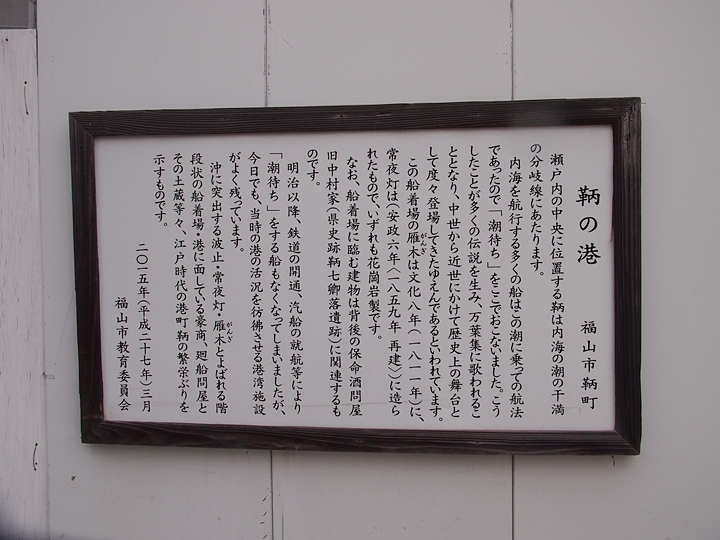 鞆の港
福山市鞆町
瀬戸内の中央に位置する鞆は内海の潮の干満
の分岐線にあたります。
内海を航行する多くの船はこの潮に乗っての航法
であったので「潮待ち」をここでおこないました。こう
したことが多くの伝説を生み、万葉集に歌われるこ
ととなり、中世から近世にかけて歴史上の舞台と
して度々登場してきたゆえんであるといわれています。
この船着場の雁木は文化八年（一八一一年）に、
がんぎ
常夜灯は（安政六年（一八五九年 再建））に造ら
れたもので、いずれも花崗岩製です。
なお、船着場に臨む建物は背後の保命酒問屋
旧中村家（県史跡鞆七卿落遺跡）に関連するも
のです。
明治以降、鉄道の開通、汽船の就航等により
「潮待ち」をする船もなくなってしまいましたが、
今日でも、当時の港の活況を彷彿させる港湾施設
がよく残っています。
沖に突出する波止・常夜灯・雁木とよばれる階
がんぎ
段状の船着場・港に面している豪商、廻船問屋と
その土蔵等々、江戸時代の港町鞆の繁栄ぶりを
示すものです。
二〇一五年（平成二十七年）三月
福山市教育委員会